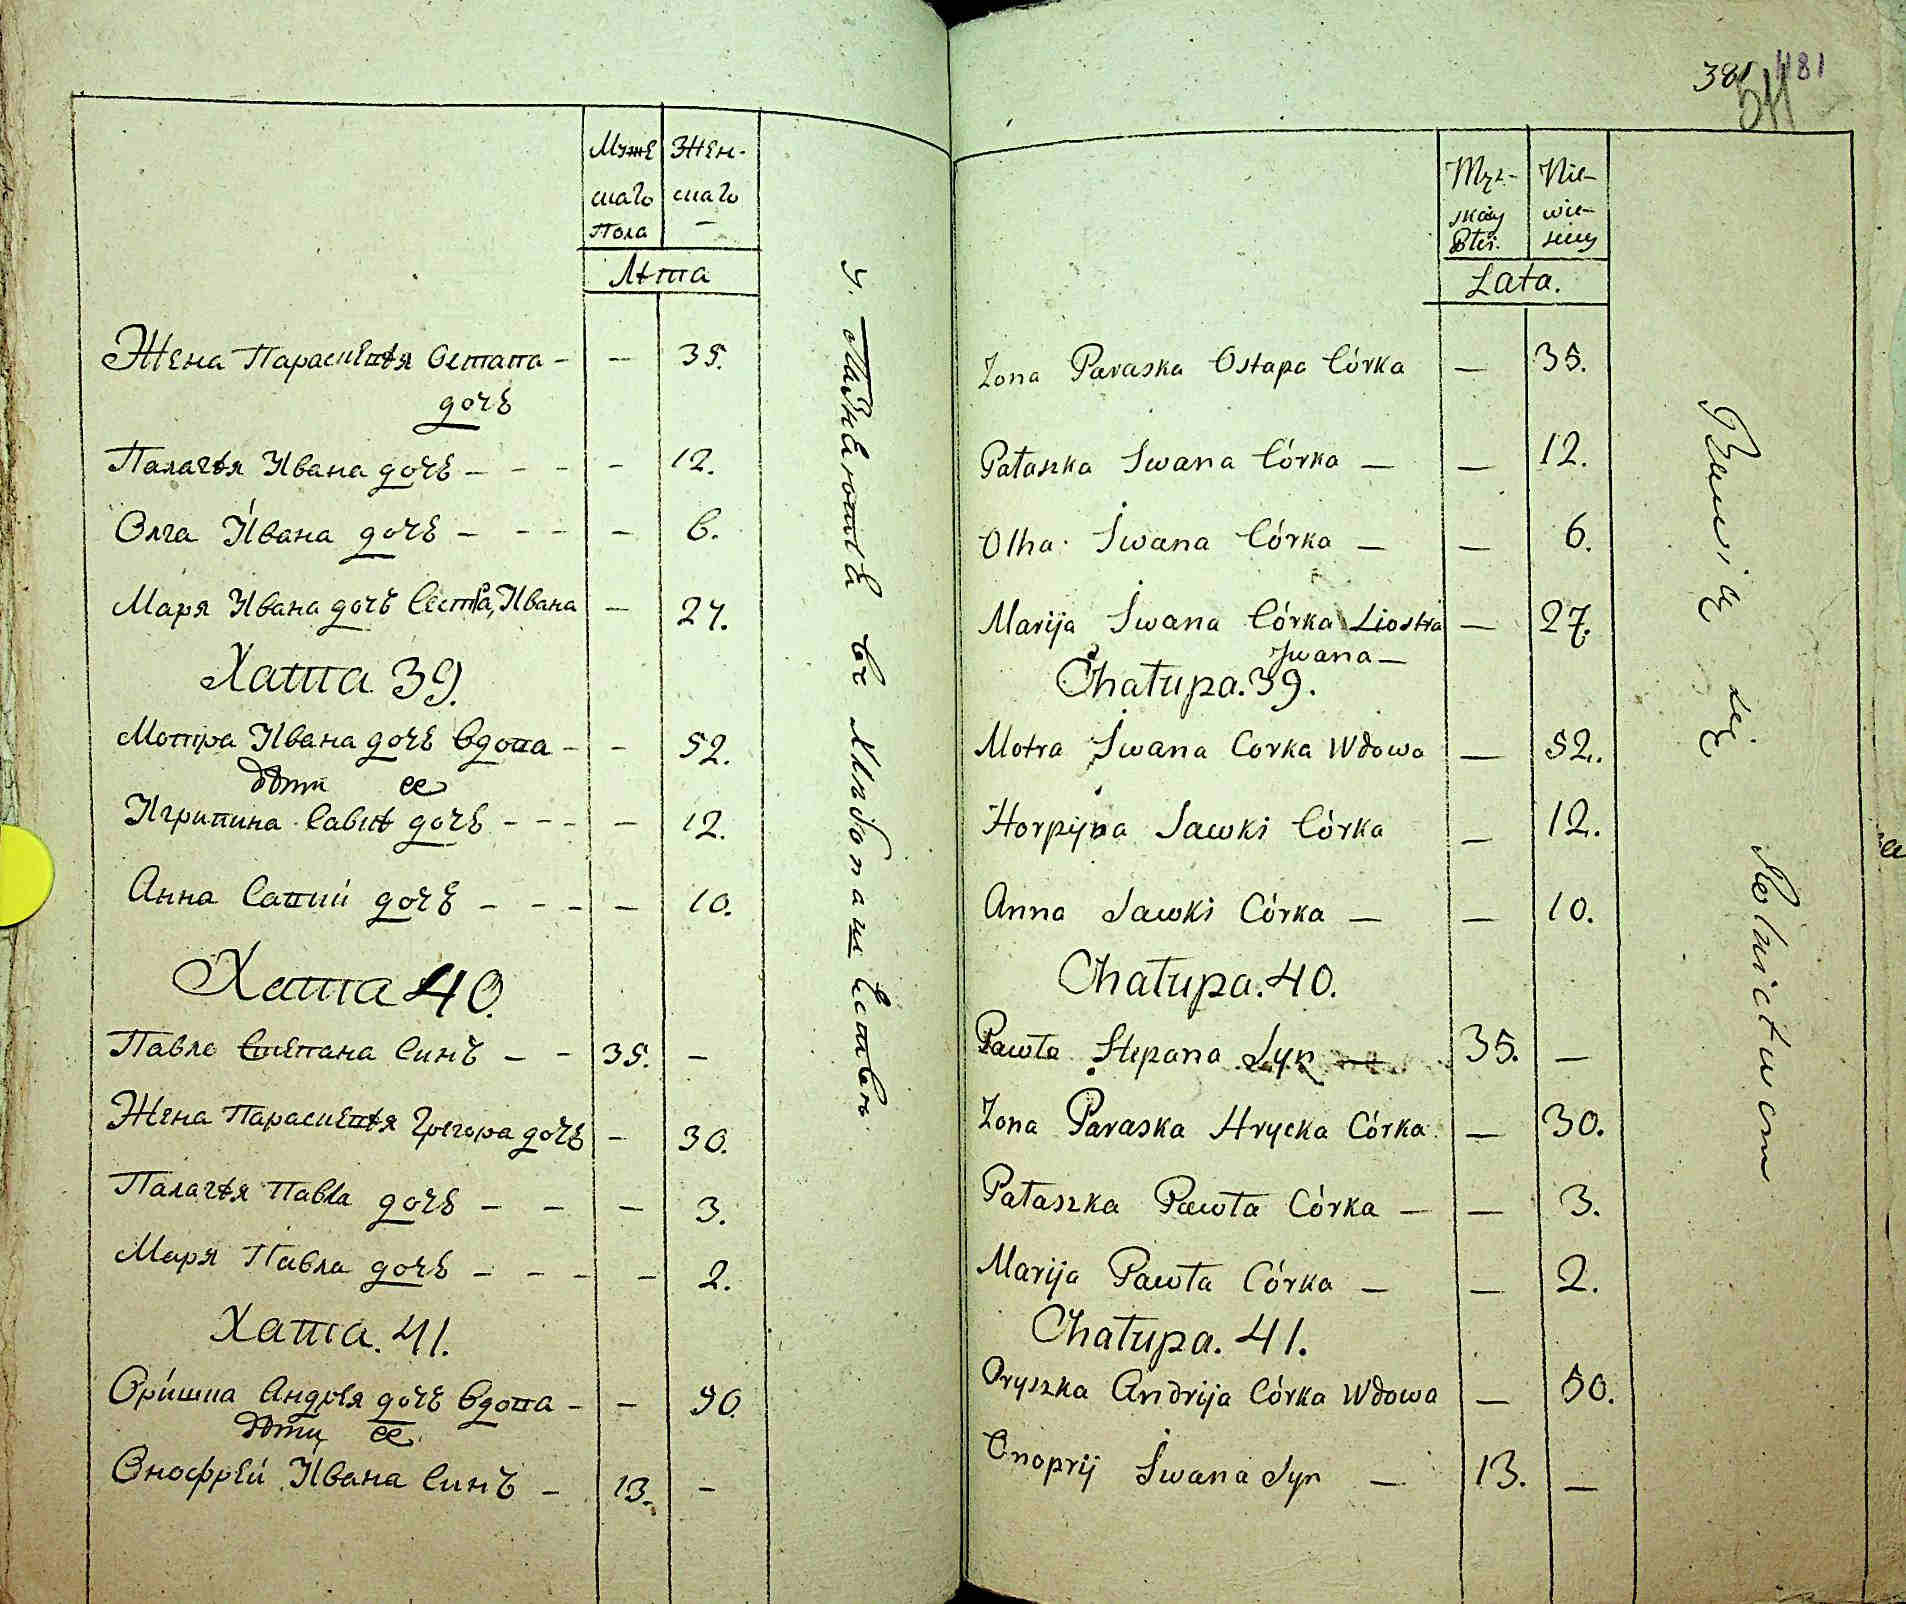 Муже Жен-
скаго скаго
пола —
Лѣта
Жена Параскевѣя Остапа - — 35.
дочь
Палагѣя Ивана дочь - - - — 12.
Олга Ивана дочь - - - — 6.
Маря Ивана дочь Сестра, Ивана — 27.
Хата 39.
Мотра Ивана дочь вдова - — 52.
дѣти ее
Игрипина Савкѣ дочь - - - — 12.
Анна Савки дочь - - - — 10.
Хата 40.
Павло Степана Синъ - - 35. —
Жена Параскевѣя Грегора дочь — 30.
Палагѣя Павла дочь - - — 3.
Маря Павла дочь - - - — 2.
Хата. 41.
Оришка Андрѣя дочь вдова - — 50.
дѣти ее
Онофрей Ивана Синъ - 13. —
381 481
511
Męz- Nie-
skiey wie-
Płei. sciey
Lata.
Zona Paraska Ostapa Córka — 35.
Pałaszka Iwana Córka — — 12.
Olha Iwana Córka — — 6.
Marija Iwana Córka Siostra — 27.
Iwana —
Chałupa. 39.
Motra Iwana Corka Wdowa — 52.
Horpyna Sawki Córka — 12.
Anna Sawki Córka — — 10.
Chałupa. 40.
Pawło Stepana Syn — 35. —
Zona Paraska Hrycka Córka — 30.
Pałaszka Pawła Córka — — 3.
Marija Pawła Córka — — 2.
Chałupa. 41.
Oryszka Andrija Córka Wdowa — 50.
Onoprij Iwana Syn — 13. —
Bawią się Rolnictwem